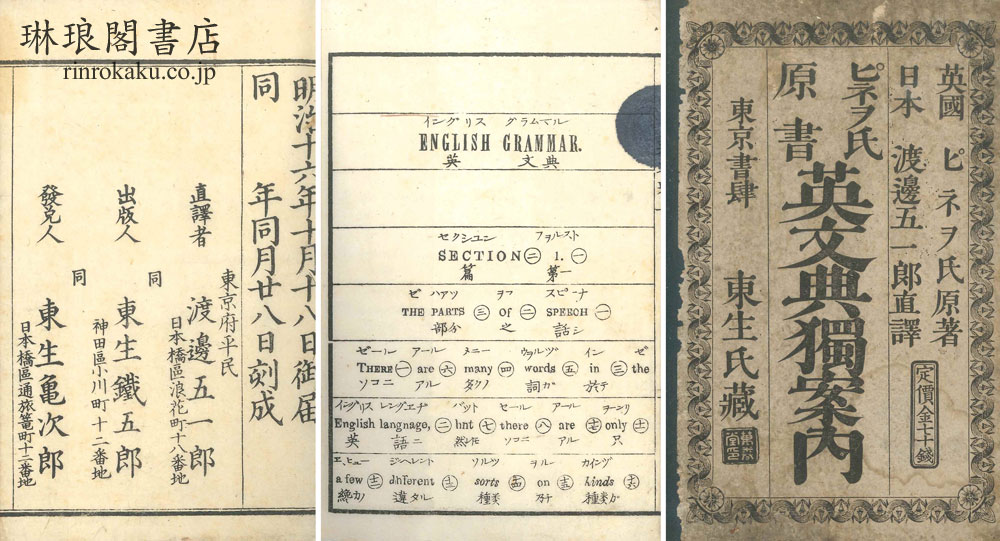 琳琅閣書店
rinrokaku.co.jp
明治十六年十月十八日御届
同 年同月廿八日刻成
東京府平民
直譯者 渡邊五一郎
日本橋區浪花町十八番地
同
出版人 東生鐵五郎
神田區小川町十二番地
同
發兌人 東生亀次郎
日本橋區通旅篭町十三番地
イングリス グラムマル
ENGLISH GRAMMAR.
英 文典
セクシユン フォルスト
SECTION ㊁ 1. ㊀
篇 第一
ゼ パアツ ヲフ スピーチ
THE PARTS ㊂ of ㊁ SPEECH ㊀
部分 之 話シ
ゼール アール メニー ウォルヅ イン ゼ
THERE ㊀ are ㊅ many ㊃ words ㊄ in ㊂ the
ソコニ アル タクノ 詞ガ 於テ
イングリス レングエヂ バット ゼール アール ヲーンリ
English langnage, ㊁ hnt ㊆ there ㊇ are only
英 語ニ 然レ𪜈 ソコニ アル 只
エ、ヒュー ジヘレント ソルツ ヲル カインヅ
a few different sorts on kinds
違タル 種類 種類ガ
英國 ピネヲ氏原著
日本 渡邊五一郎直譯
定價金二十錢
ピネヲ氏
原書 英文典獨案内
東京書肆 東生氏藏